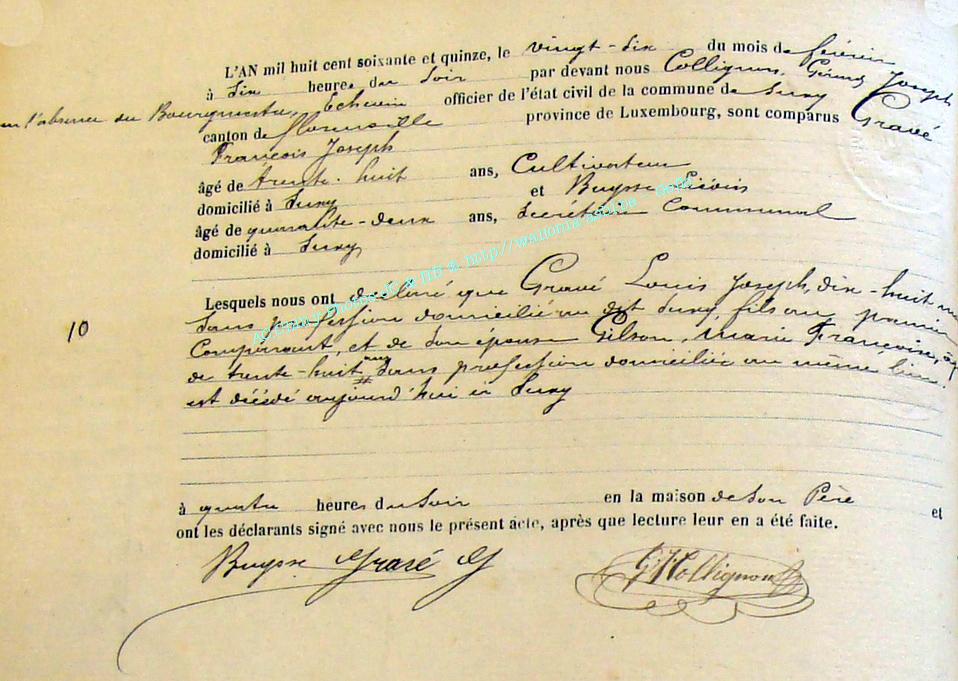 L'AN mil huit cent soixante et quinze, le vingt-six du mois de février
à six heures du soir par devant nous Collignon, Gérard Joseph
en l'absence du Bourgmestre, Echevin officier de l'état civil de la commune de Suxy
canton de florenville province de Luxembourg, sont comparus Gravé
François Joseph
âgé de trente-huit ans, Cultivateur
domicilié à Suxy et Buysse Liévin
âgé de quarante-deux ans, Secrétaire Communal
domicilié à Suxy
Lesquels nous ont déclaré que Gravé Louis Joseph, dix-huit
10
sans profession domicilié au dit Suxy, fils du premier
Comparant, et de son épouse Gilson, Marie Françoise,
de trente-huit ans sans profession domiciliée au même lieu
est décédé aujourd'hui à Suxy
à quatre heures du soir en la maison de son Père et
ont les déclarants signé avec nous le présent acte, après que lecture leur en a été faite.
Buysse Gravé G Collignon